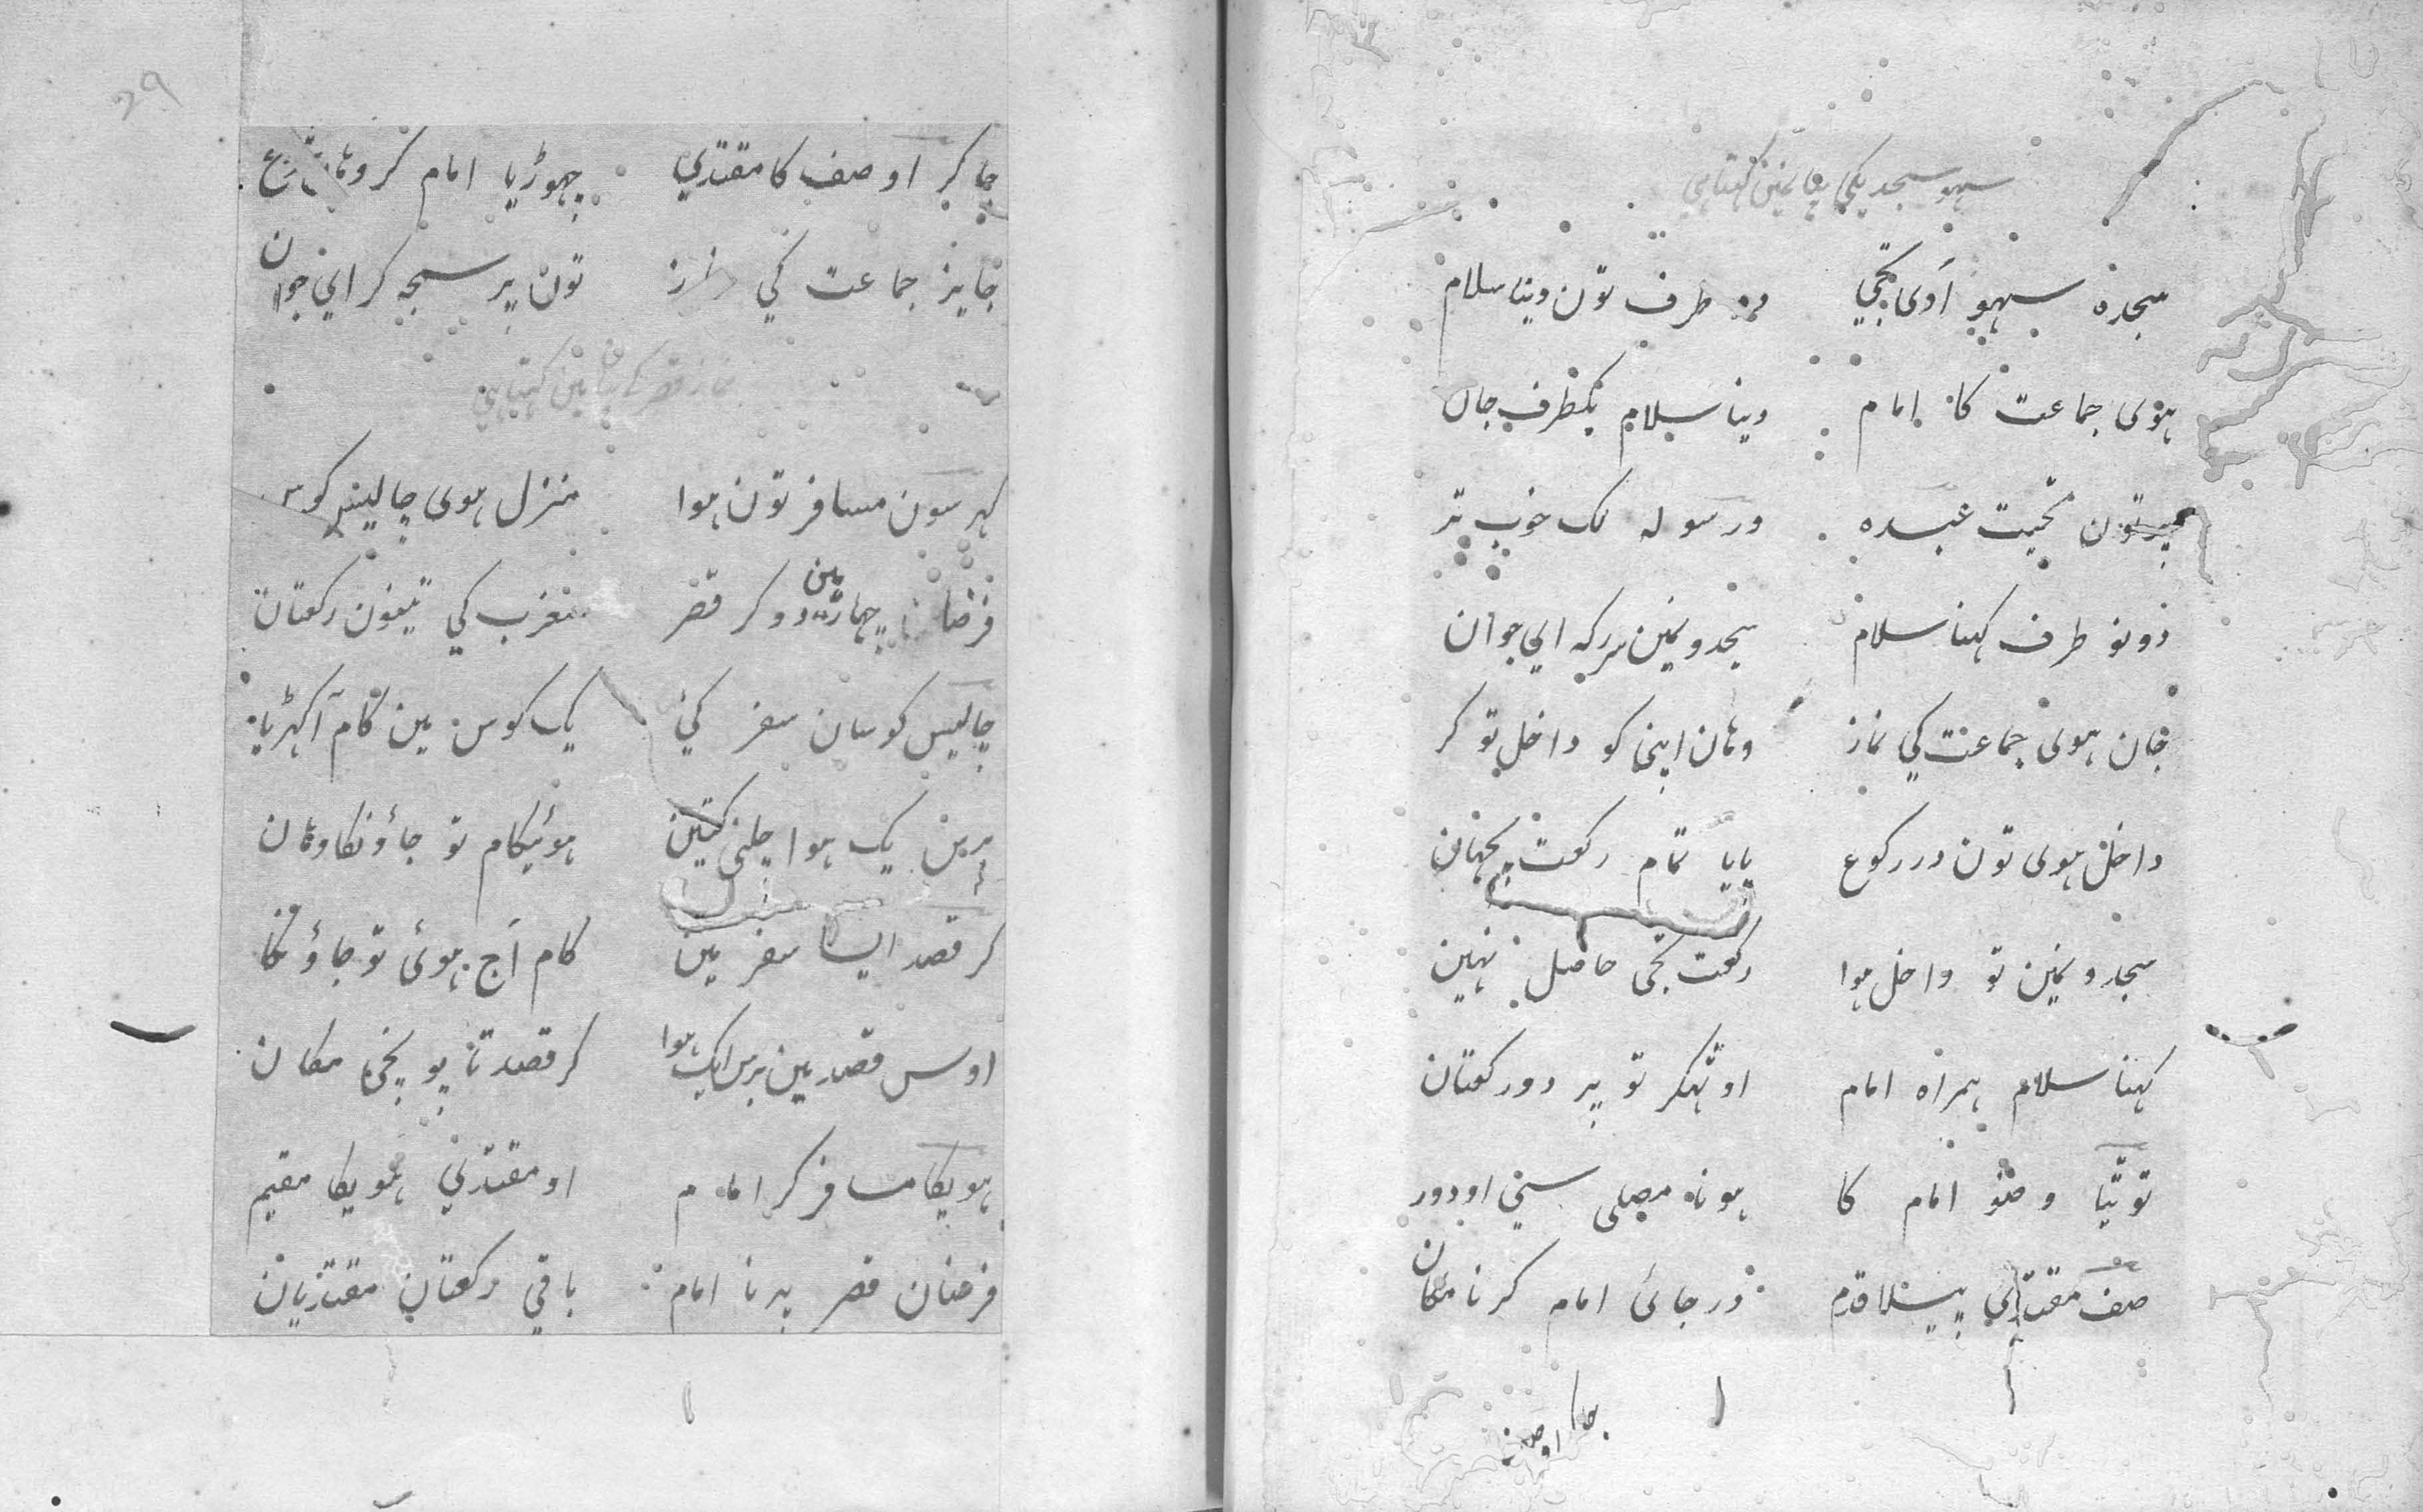 سہو سجدیکی بیانمین کہتاہی
سجدہ سہو آوی تجی دو طرف تون دینا سلام
ہوی جماعت کا امام دینا سلام یکطرف جان
پر تون تحیت عبده ورسوله لک خوب تر
دونو طرف کہنا سلام سجدو نمین سر رکہ ای جوان
جان ہوی جماعت کی نماز وہان اپنی کو داخل تو کر
داخل ہوی تون در رکوع پایا تمام رکعت پچھان
سجدو نمین تو داخل ہوا رکعت تجی حاصل نہین
کہنا سلام ہمراہ امام اوٹہکر تو پر دو رکعتان
توٹیا وضو امام کا ہونا مصلی سیتی او دور
صف مقتدی پیسلا قدم ور جائی امام کرنا مکان
جا کر
29
جا کر او صف کا مقتدی چھوڑیا امام کر وہان
جایز جماعت کی نماز تون پر سمجہ کر ای جوان
نماز قصر کا بیان مین کہتاہی
کہر سون مسافر تون ہوا منزل ہوی چالیس کوس
فرضان چہار مین دو کر قصر مغرب کی تینون رکعتان
چالیس کوسان سفر کئ یک کوس مین کام آکہڑیا
برس یک ہوا چلنی کتین ہوئیکام تو جاؤنکا وہان
کر قصد ایسا سفر مین کام آج ہوئی تو جاؤنکا
اوس قصد مین برس ایک ہوا کر قصد تا پونچی مکان
ہویکا مسافر کر امام او مقتدی ہویکا مقیم
فرضان قصر پرنا امام باقی رکعتان مقتدیان